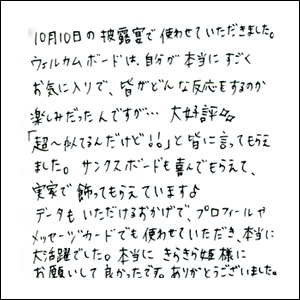 10月10日の披露宴で使わせていただきました。
ウェルカムボードは、自分が本当にすごく
お気に入りで、皆がどんな反応をするのか
楽しみだったんですが… 大好評!!
「超〜似てるんだけど!!。」と皆に言ってもらえ
ました。サンクスボードも喜んでもらえて、
実家で飾ってもらえています♪
データもいただけるおかげで、プロフィールや
メッセージカードでも使わせていただき、本当に
大活躍でした。本当に きらきら姫様に
お願いして良かったです。ありがとうございました。